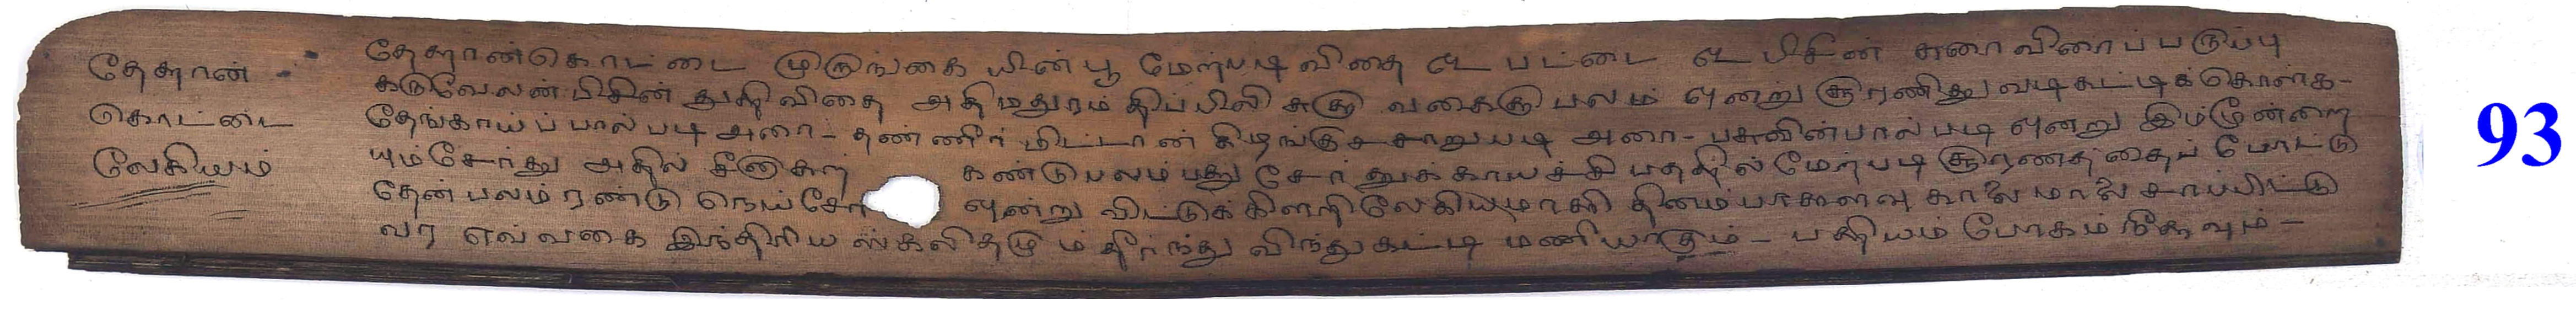 தேகூான்
கொட்டை
லேகியம்
தேகூான்கொட்டை முருங்கை யின்பூ மேற்படி விதை ௸ பட்டை ௸ பிசின் சுரை விரைப்பருப்பு
கருவேலன் பிசின் துளிவிதை அதிமதுரம் திப்பிலி சுக்கு வகைக்கு பலம் ஒன்று சூரணித்து வடிகட்டிக்கொள்க-
தேங்காய்ப்பால் படி அரை- தண்ணீர் விட்டான் கிழங்குச்சாறு படி அரை- பசுவின்பால் படி ஒன்று இம்மூன்றை
யும் சேர்த்து அதில் சீனிகற் கண்டு பலம் பத்து சேர்த்துக்காய்ச்சி பதத்தில் மேற்படி சூரணத்தைப் போட்டு
தேன் பலம் ரண்டு நெய் சேர் ஒன்று விட்டுக்கிளறி லேகியமாக்கி தினம் பாக்களவு காலை மாலை சாப்பிட்டு
வர எவ்வகை இந்திரிய ஸ்கலிதமும் தீர்ந்து விந்து கட்டி மணியாகும்- பத்தியம் போகம் நீக்கவும்-